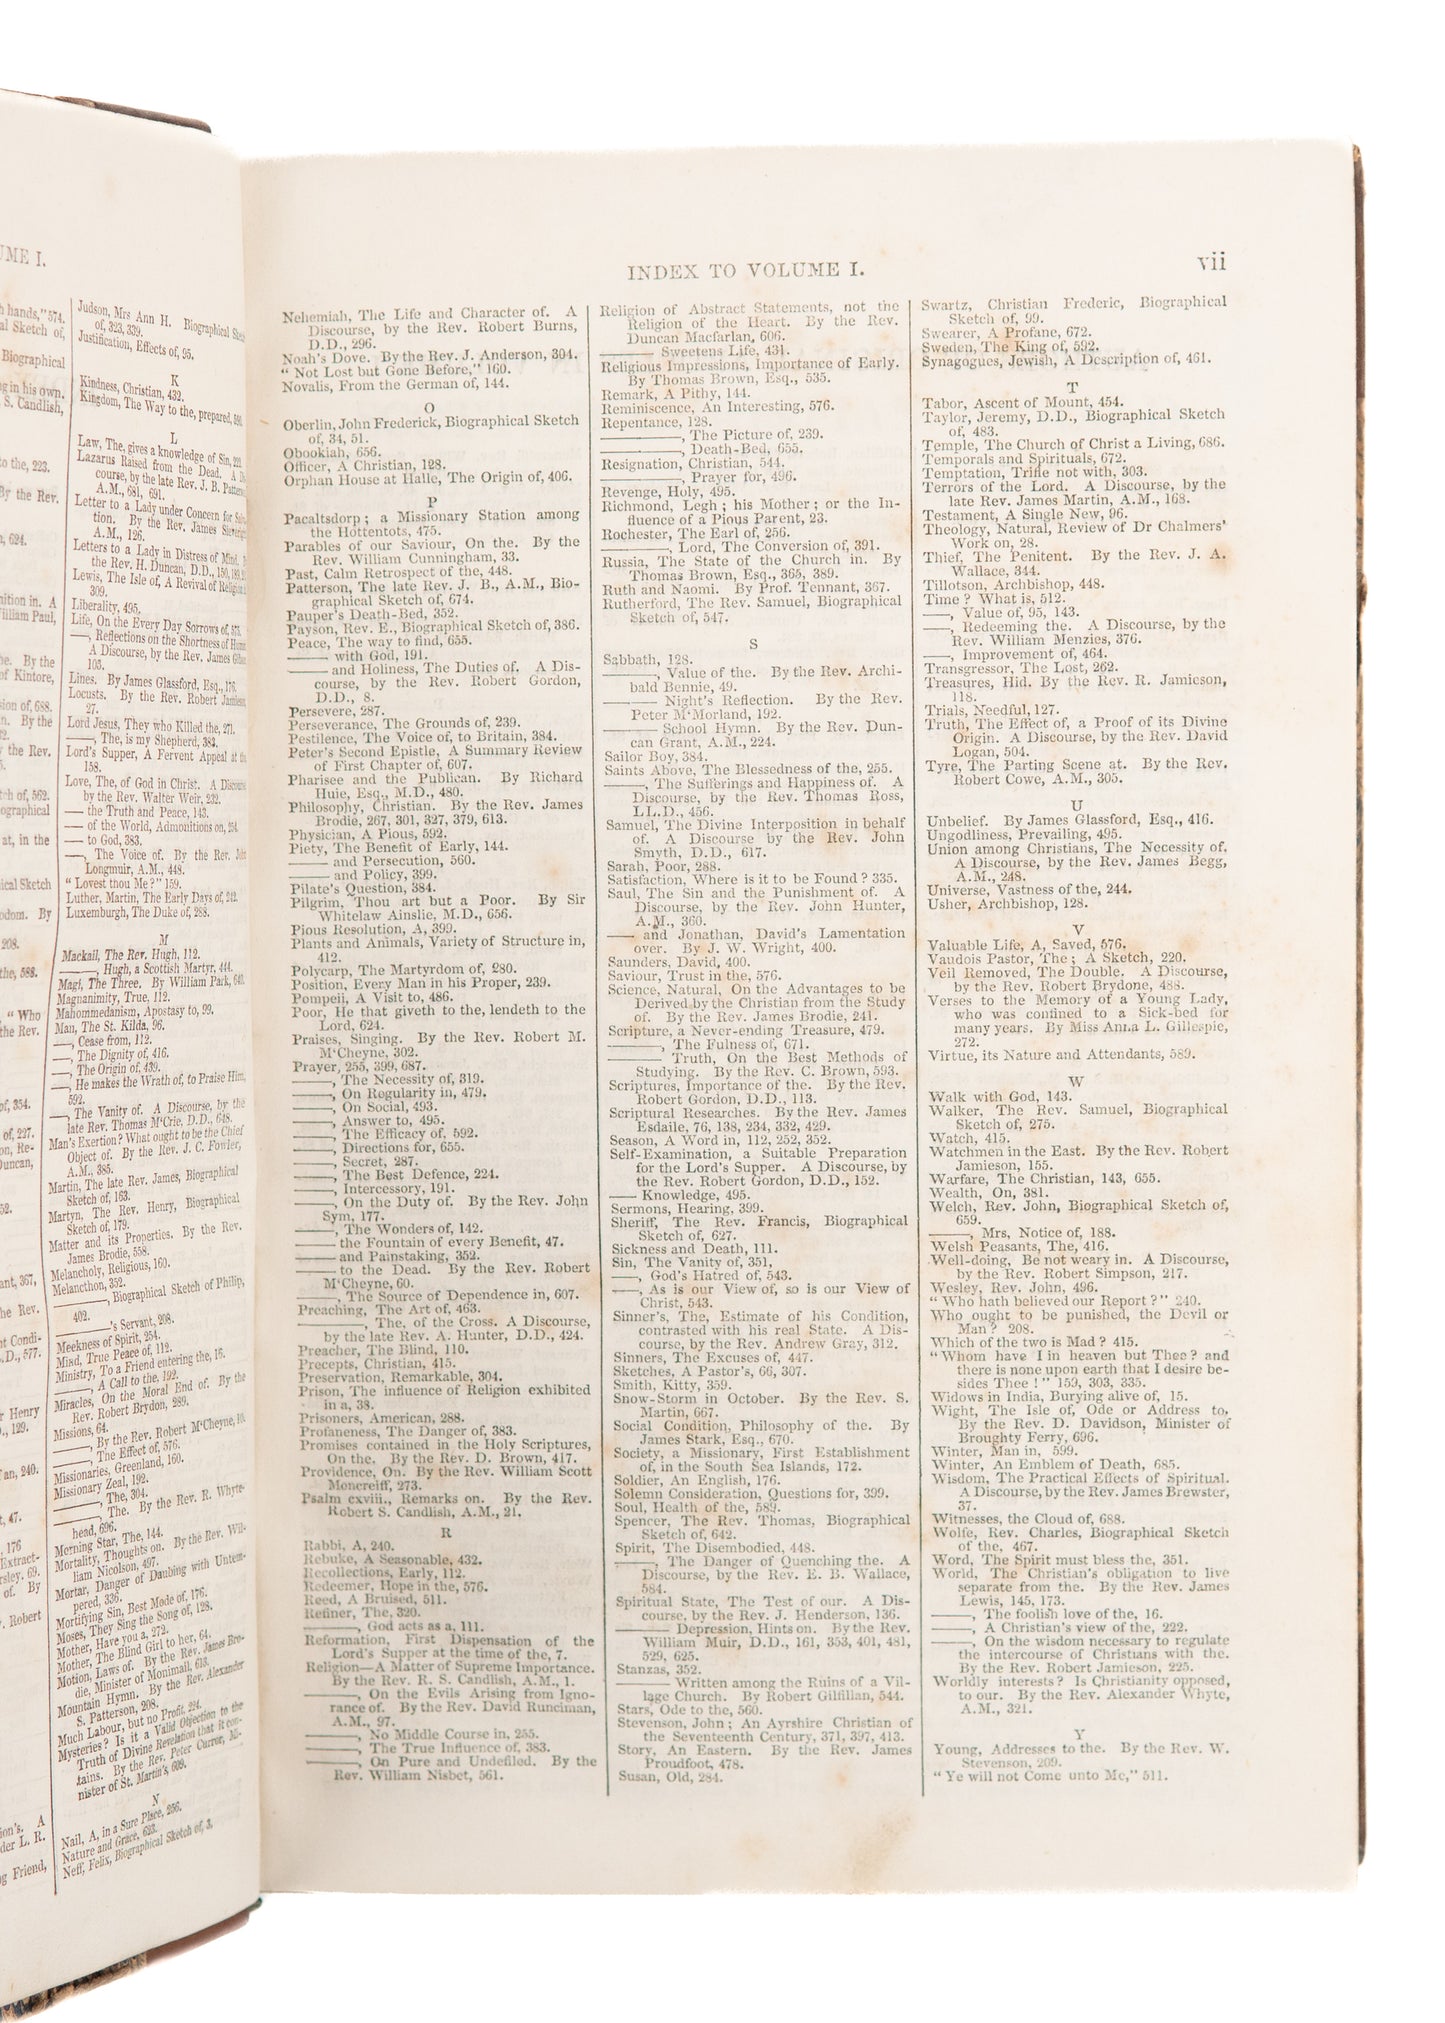 UME I.
h hands," 574.
al Sketch of,
Biographical
g in his own.
S. Candlish,
to the, 223.
By the Rev.
, 624.
nition in. A
William Paul,
he. By the
of Kintore,
sion of, 688.
n. By the
the Rev.
ch of, 562.
ographical
at, in the
ical Sketch
odom. By
208.
the, 588.
"Who
the Rev.
of, 354.
of, 227.
on, Re-
Duncan,
52.
ant, 367,
he Rev.
nt Condi-
.D., 577.
r Henry
., 129.
an, 240.
t, 47.
, 176
Extract-
rsley. 69.
of. By
. Robert
ion's. A
der L. R.
g Friend,
Judson, Mrs Ann H. Biographical Sket
of, 323, 339.
Justification, Effects of, 95.
K
Kindness, Christian, 432.
Kingdom, The Way to the, prepared, 590.
L
Law, The, gives a knowledge of Sin, 221.
Lazarus Raised from the Dead. A Di
course, by the late Rev. J. B. Patterson,
A.M., 681, 691.
Letter to a Lady under Concern for Salva-
tion. By the Rev. James
A.M., 126.
Letters to a Lady in Distress of Mind.
the Rev. H. Duncan, D.D., 150,
Lewis, The Isle of, A Revival of Religion
309.
Liberality, 495.
Life, On the Every Day Sorrows of, 375.
——, Reflections on the Shortness of Human
A Discourse, by the Rev. James
105.
Lines. By James Glassford, Esq., 176.
Locusts. By the Rev. Robert Jamieson,
27.
Lord Jesus, They who Killed the, 271.
——, The, is my Shepherd, 383.
Lord's Supper, A Fervent Appeal at the
158.
Love, The, of God in Christ. A Discourse
by the Rev. Walter Weir, 232.
—— the Truth and Peace, 143.
—— of the World, Admonitions on, 254.
—— to God, 383.
——, The Voice of. By the Rev. John
Longmuir, A.M., 448.
"Lovest thou Me?" 159.
Luther, Martin, The Early Days of, 212.
Luxemburgh, The Duke of, 288.
M
Mackail, The Rev. Hugh, 112.
——, Hugh, a Scottish Martyr, 444.
Magi, The Three. By William Park, 640.
Magnanimity, True, 112.
Mahommedanism, Apostasy to, 99.
Man, The St. Kilda, 96.
——, Cease from, 112.
——, The Dignity of, 416.
——, The Origin of, 439.
——, He makes the Wrath of, to Praise Him,
592.
——, The Vanity of. A Discourse, by the
late Rev. Thomas M'Crie, D.D., 648.
Man's Exertion? What ought to be the Chief
Object of. By the Rev. J. C. Fowler,
A.M., 385.
Martin, The late Rev. James, Biographical
Sketch of, 163.
Martyn, The Rev. Henry, Biographical
Sketch of, 179.
Matter and its Properties. By the Rev.
James Brodie, 558.
Melancholy, Religious, 160.
Melancthon, 352.
——, Biographical Sketch of Philip,
402.
——'s Servant, 208.
Meekness of Spirit, 254.
Mind, True Peace of, 112.
Ministry, To a Friend entering the, 16.
——, A Call to the, 192.
Miracles, On the Moral End of. By the
Rev. Robert Brydon, 289.
Missions, 64.
——, By the Rev. Robert M'Cheyne,
——, The Effect of, 576.
Missionaries, Greenland, 160.
Missionary Zeal, 192.
——, The, 304.
——, The. By the Rev. R. Whyte-
head, 696.
Morning Star, The, 144.
Mortality, Thoughts on. By the Rev. Wil-
liam Nicolson, 497.
Mortar, Danger of Daubing with Untem-
pered, 336.
Mortifying Sin, Best Mode of, 176.
Moses, They Sing the Song of, 128.
Mother, Have you a, 272.
Mother, The Blind Girl to her, 64.
Motion, Laws of. By the Rev. James Bro-
die, Minister of Monimail, 613.
Mountain Hymn. By the Rev. Alexander
S. Patterson, 208.
Much Labour, but no Profit, 224.
Mysteries? Is it a Valid Objection to the
Truth of Divine Revelation that it con-
tains. By the Rev. Peter Curror, Mi-
nister of St. Martin's, 609.
N
Nail, A, in a Sure Place, 256.
Nature and Grace, 623.
Neff, Felix, Biographical Sketch of, 3,
INDEX TO VOLUME I.
vii
Nehemiah, The Life and Character of. A
Discourse, by the Rev. Robert Burns,
D.D., 296.
Noah's Dove. By the Rev. J. Anderson, 304.
"Not Lost but Gone Before," 160.
Novalis, From the German of, 144.
O
Oberlin, John Frederick, Biographical Sketch
of, 34, 51.
Obookiah, 656.
Officer, A Christian, 128.
Orphan House at Halle, The Origin of, 406.
P
Pacaltsdorp; a Missionary Station among
the Hottentots, 475.
Parables of our Saviour, On the. By the
Rev. William Cunningham, 33.
Past, Calm Retrospect of the, 448.
Patterson, The late Rev. J. B., A.M., Bio-
graphical Sketch of, 674.
Pauper's Death-Bed, 352.
Payson, Rev. E., Biographical Sketch of, 386.
Peace, The way to find, 655.
—— with God, 191.
—— and Holiness, The Duties of. A Dis-
course, by the Rev. Robert Gordon,
D.D., 8.
Persevere, 287.
Perseverance, The Grounds of, 239.
Pestilence, The Voice of, to Britain, 384.
Peter's Second Epistle, A Summary Review
of First Chapter of, 607.
Pharisee and the Publican. By Richard
Huie, Esq., M.D., 480.
Philosophy, Christian. By the Rev. James
Brodie, 267, 301, 327, 379, 613.
Physician, A Pious, 592.
Piety, The Benefit of Early, 144.
—— and Persecution, 560.
—— and Policy, 399.
Pilate's Question, 384.
Pilgrim, Thou art but a Poor. By Sir
Whitelaw Ainslie, M.D., 656.
Pious Resolution, A, 399.
Plants and Animals, Variety of Structure in,
412.
Polycarp, The Martyrdom of, 280.
Position, Every Man in his Proper, 239.
Pompeii, A Visit to, 486.
Poor, He that giveth to the, lendeth to the
Lord, 624.
Praises, Singing. By the Rev. Robert M.
M'Cheyne, 302.
Prayer, 255, 399, 687.
——, The Necessity of, 319.
——, On Regularity in, 479.
——, On Social, 493.
——, Answer to, 495.
——, The Efficacy of, 592.
——, Directions for, 655.
——, Secret, 287.
——, The Best Defence, 224.
——, Intercessory, 191.
——, On the Duty of. By the Rev. John
Sym, 177.
——, The Wonders of, 142.
—— the Fountain of every Benefit, 47.
—— and Painstaking, 352.
—— to the Dead. By the Rev. Robert
M'Cheyne, 60.
——, The Source of Dependence in, 607.
Preaching, The Art of, 463.
——, The, of the Cross. A Discourse,
by the late Rev. A. Hunter, D.D., 424.
Preacher, The Blind, 110.
Precepts, Christian, 415.
Preservation, Remarkable, 304.
Prison, The influence of Religion exhibited
in a, 38.
Prisoners, American, 288.
Profaneness, The Danger of, 383.
Promises contained in the Holy Scriptures,
On the. By the Rev. D. Brown, 417.
Providence, On. By the Rev. William Scott
Moncreiff, 273.
Psalm cxviii., Remarks on. By the Rev.
Robert S. Candlish, A.M., 21.
R
Rabbi, A, 240.
Rebuke, A Seasonable, 432.
Recollections, Early, 112.
Redeemer, Hope in the, 576.
Reed, A Bruised, 511.
Refiner, The, 320.
——, God acts as a, 111.
Reformation, First Dispensation of the
Lord's Supper at the time of the, 7.
Religion—A Matter of Supreme Importance.
By the Rev. R. S. Candlish, A.M., 1.
——, On the Evils Arising from Igno-
rance of. By the Rev. David Runciman,
A.M., 97.
——, No Middle Course in, 255.
——, The True Influence of, 383.
——, On Pure and Undefiled. By the
Rev. William Nisbet, 561.
Religion of Abstract Statements, not the
Religion of the Heart. By the Rev.
Duncan Macfarlan, 606.
—— Sweetens Life, 431.
Religious Impressions, Importance of Early.
By Thomas Brown, Esq., 535.
Remark, A Pithy, 144.
Reminiscence, An Interesting, 576.
Repentance, 128.
——, The Picture of, 239.
——, Death-Bed, 655.
Resignation, Christian, 544.
——, Prayer for, 496.
Revenge, Holy, 495.
Richmond, Legh; his Mother; or the In-
fluence of a Pious Parent, 23.
Rochester, The Earl of, 256.
——, Lord, The Conversion of, 391.
Russia, The State of the Church in. By
Thomas Brown, Esq., 365, 389.
Ruth and Naomi. By Prof. Tennant, 367.
Rutherford, The Rev. Samuel, Biographical
Sketch of, 547.
S
Sabbath, 128.
——, Value of the. By the Rev. Archi-
bald Bennie, 49.
—— Night's Reflection. By the Rev.
Peter M'Morland, 192.
—— School Hymn. By the Rev. Dun-
can Grant, A.M., 224.
Sailor Boy, 384.
Saints Above, The Blessedness of the, 255.
——, The Sufferings and Happiness of. A
Discourse, by the Rev. Thomas Ross,
LL.D., 456.
Samuel, The Divine Interposition in behalf
of. A Discourse by the Rev. John
Smyth, D.D., 617.
Sarah, Poor, 288.
Satisfaction, Where is it to be Found? 335.
Saul, The Sin and the Punishment of. A
Discourse, by the Rev. John Hunter,
A.M., 360.
—— and Jonathan, David's Lamentation
over. By J. W. Wright, 400.
Saunders, David, 400.
Saviour, Trust in the, 576.
Science, Natural, On the Advantages to be
Derived by the Christian from the Study
of. By the Rev. James Brodie, 241.
Scripture, a Never-ending Treasure, 479.
——, The Fulness of, 671.
—— Truth, On the Best Methods of
Studying. By the Rev. C. Brown, 593.
Scriptures, Importance of the. By the Rev.
Robert Gordon, D.D., 113.
Scriptural Researches. By the Rev. James
Esdaile, 76, 138, 234, 332, 429.
Season, A Word in, 112, 252, 352.
Self-Examination, a Suitable Preparation
for the Lord's Supper. A Discourse, by
the Rev. Robert Gordon, D.D., 152.
—— Knowledge, 495.
Sermons, Hearing, 399.
Sheriff, The Rev. Francis, Biographical
Sketch of, 627.
Sickness and Death, 111.
Sin, The Vanity of, 351,
——, God's Hatred of, 543.
——, As is our View of, so is our View of
Christ, 543.
Sinner's, The, Estimate of his Condition,
contrasted with his real State. A Dis-
course, by the Rev. Andrew Gray, 312.
Sinners, The Excuses of, 447.
Sketches, A Pastor's, 66, 307.
Smith, Kitty, 359.
Snow-Storm in October. By the Rev. S.
Martin, 667.
Social Condition, Philosophy of the. By
James Stark, Esq., 670.
Society, a Missionary, First Establishment
of, in the South Sea Islands, 172.
Soldier, An English, 176.
Solemn Consideration, Questions for, 399.
Soul, Health of the, 589.
Spencer, The Rev. Thomas, Biographical
Sketch of, 642.
Spirit, The Disembodied, 448.
——, The Danger of Quenching the. A
Discourse, by the Rev. E. B. Wallace,
584.
Spiritual State, The Test of our. A Dis-
course, by the Rev. J. Henderson, 136.
—— Depression, Hints on. By the Rev.
William Muir, D.D., 161, 353, 401, 481,
529, 625.
Stanzas, 352.
—— Written among the Ruins of a Vil-
lage Church. By Robert Gilfillan, 544.
Stars, Ode to the, 560.
Stevenson, John; An Ayrshire Christian of
the Seventeenth Century, 371, 397, 413.
Story, An Eastern. By the Rev. James
Proudfoot, 478.
Susan, Old, 284.
Swartz, Christian Frederic, Biographical
Sketch of, 99.
Swearer, A Profane, 672.
Sweden, The King of, 592.
Synagogues, Jewish, A Description of, 461.
T
Tabor, Ascent of Mount, 454.
Taylor, Jeremy, D.D., Biographical Sketch
of, 483.
Temple, The Church of Christ a Living, 686.
Temporals and Spirituals, 672.
Temptation, Trifle not with, 303.
Terrors of the Lord. A Discourse, by the
late Rev. James Martin, A.M., 168.
Testament, A Single New, 96.
Theology, Natural, Review of Dr Chalmers'
Work on, 28.
Thief, The Penitent. By the Rev. J. A.
Wallace, 344.
Tillotson, Archbishop, 448.
Time? What is, 512.
——, Value of, 95, 143.
——, Redeeming the. A Discourse, by the
Rev. William Menzies, 376.
——, Improvement of, 464.
Transgressor, The Lost, 262.
Treasures, Hid. By the Rev. R. Jamieson,
118.
Trials, Needful, 127.
Truth, The Effect of, a Proof of its Divine
Origin. A Discourse, by the Rev. David
Logan, 504.
Tyre, The Parting Scene at. By the Rev.
Robert Cowe, A.M., 305.
U
Unbelief. By James Glassford, Esq., 416.
Ungodliness, Prevailing, 495.
Union among Christians, The Necessity of,
A Discourse, by the Rev. James Begg,
A.M., 248.
Universe, Vastness of the, 244.
Usher, Archbishop, 128.
V
Valuable Life, A, Saved, 576.
Vaudois Pastor, The; A Sketch, 220.
Veil Removed, The Double. A Discourse,
by the Rev. Robert Brydone, 488.
Verses to the Memory of a Young Lady,
who was confined to a Sick-bed for
many years. By Miss Anna L. Gillespie,
272.
Virtue, its Nature and Attendants, 589.
W
Walk with God, 143.
Walker, The Rev. Samuel, Biographical
Sketch of, 275.
Watch, 415.
Watchmen in the East. By the Rev. Robert
Jamieson, 155.
Warfare, The Christian, 143, 655.
Wealth, On, 381.
Welch, Rev. John, Biographical Sketch of,
659.
——, Mrs, Notice of, 188.
Welsh Peasants, The, 416.
Well-doing, Be not weary in. A Discourse,
by the Rev. Robert Simpson, 217.
Wesley, Rev. John, 496.
"Who hath believed our Report?" 240.
Who ought to be punished, the Devil or
Man? 208.
Which of the two is Mad? 415.
"Whom have I in heaven but Thee? and
there is none upon earth that I desire be-
sides Thee!" 159, 303, 335.
Widows in India, Burying alive of, 15.
Wight, The Isle of, Ode or Address to,
By the Rev. D. Davidson, Minister of
Broughty Ferry, 696.
Winter, Man in, 599.
Winter, An Emblem of Death, 685.
Wisdom, The Practical Effects of Spiritual.
A Discourse, by the Rev. James Brewster,
37.
Witnesses, the Cloud of, 688.
Wolfe, Rev. Charles, Biographical Sketch
of the, 467.
Word, The Spirit must bless the, 351.
World, The Christian's obligation to live
separate from the. By the Rev. James
Lewis, 145, 173.
——, The foolish love of the, 16.
——, A Christian's view of the, 222.
——, On the wisdom necessary to regulate
the intercourse of Christians with the.
By the Rev. Robert Jamieson, 225.
Worldly interests? Is Christianity opposed,
to our. By the Rev. Alexander Whyte,
A.M., 321.
Y
Young, Addresses to the. By the Rev. W.
Stevenson, 209.
"Ye will not Come unto Me," 511.